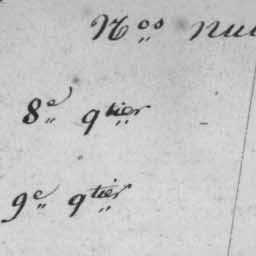 Nos nu
8e qtier
9e qtier